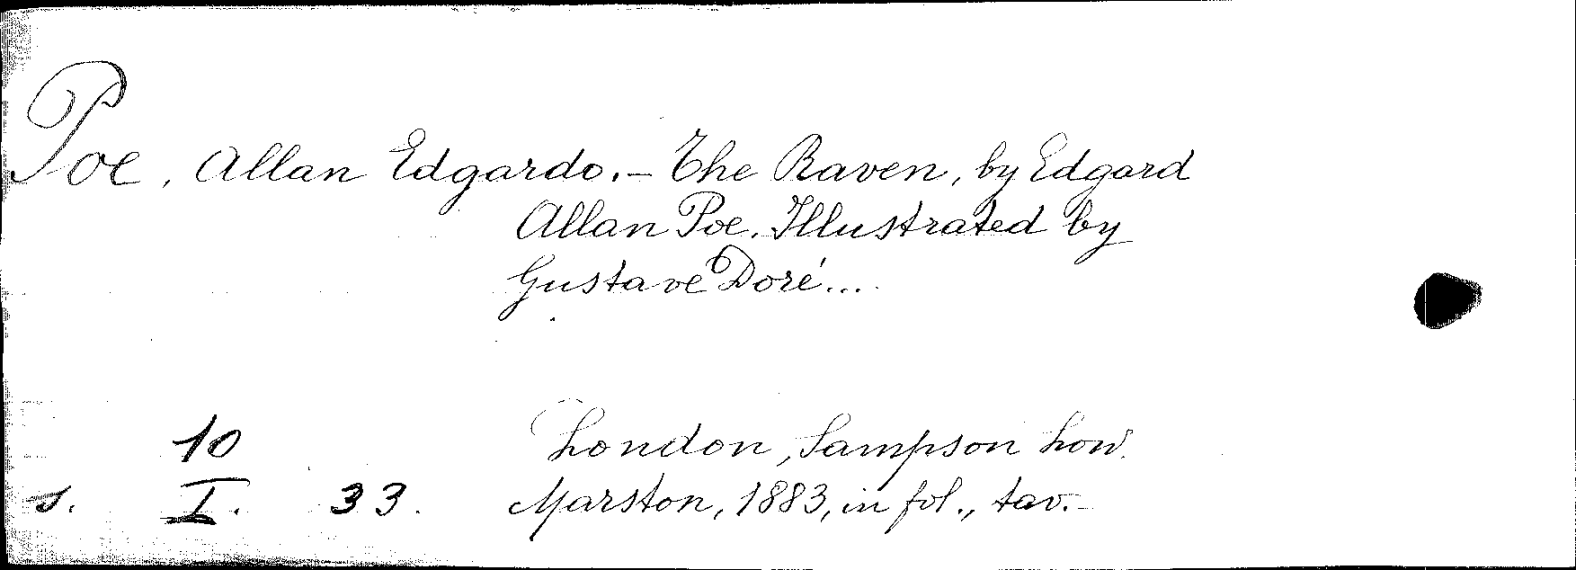 Poe, Allan Edgardo.- The Raven, by Edgard
Allan Poe. Illustrated by
Gustave Doré...
10
London, Sampson Low.
s. I. 33. Marston, 1883, in fol., tav.-